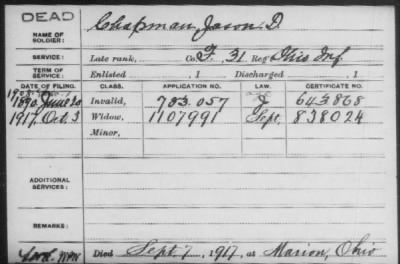 DEAD
NAME OF SOLDIER: Chapman, Jason D.
SERVICE: Late rank, Co. F, 31 Reg't Ohio Inf.
TERM OF SERVICE: Enlisted , 1 Discharged , 1
DATE OF FILING. CLASS. APPLICATION NO. LAW. CERTIFICATE NO.
1890 June 20 Invalid, 783.057 643868
1917. Oct. 3 Widow, 1107991 Sept. 838024
Minor,
ADDITIONAL SERVICES:
REMARKS:
Died Sept. 7, 1917, at Marion, Ohio